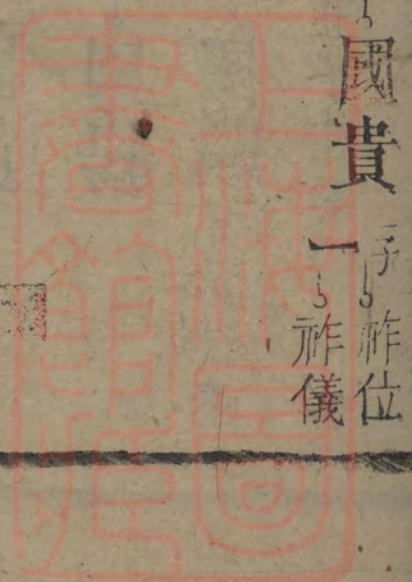 國貴
子祚位
一祚儀
上海圖書館藏